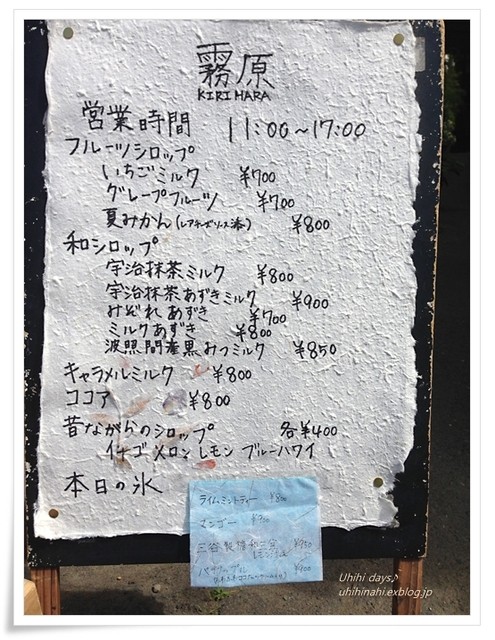 霧原
KIRIHARA
営業時間 11:00~17:00
フルーツシロップ
いちごミルク ¥700
グレープフルーツ ¥700
夏みかん(レアチーズソース添) ¥800
和シロップ
宇治抹茶ミルク ¥800
宇治抹茶あずきミルク ¥900
みぞれあずき ¥700
ミルクあずき ¥800
波照間産黒みつミルク ¥850
キャラメルミルク ¥800
ココア ¥800
昔ながらのシロップ 各¥400
イチゴ メロン レモン ブルーハワイ
本日の氷
ライムミントティー ¥800
マンゴー
三谷製糖和三盆 ¥950
¥900
Uhihi days♪
uhihinahi.exblog.jp